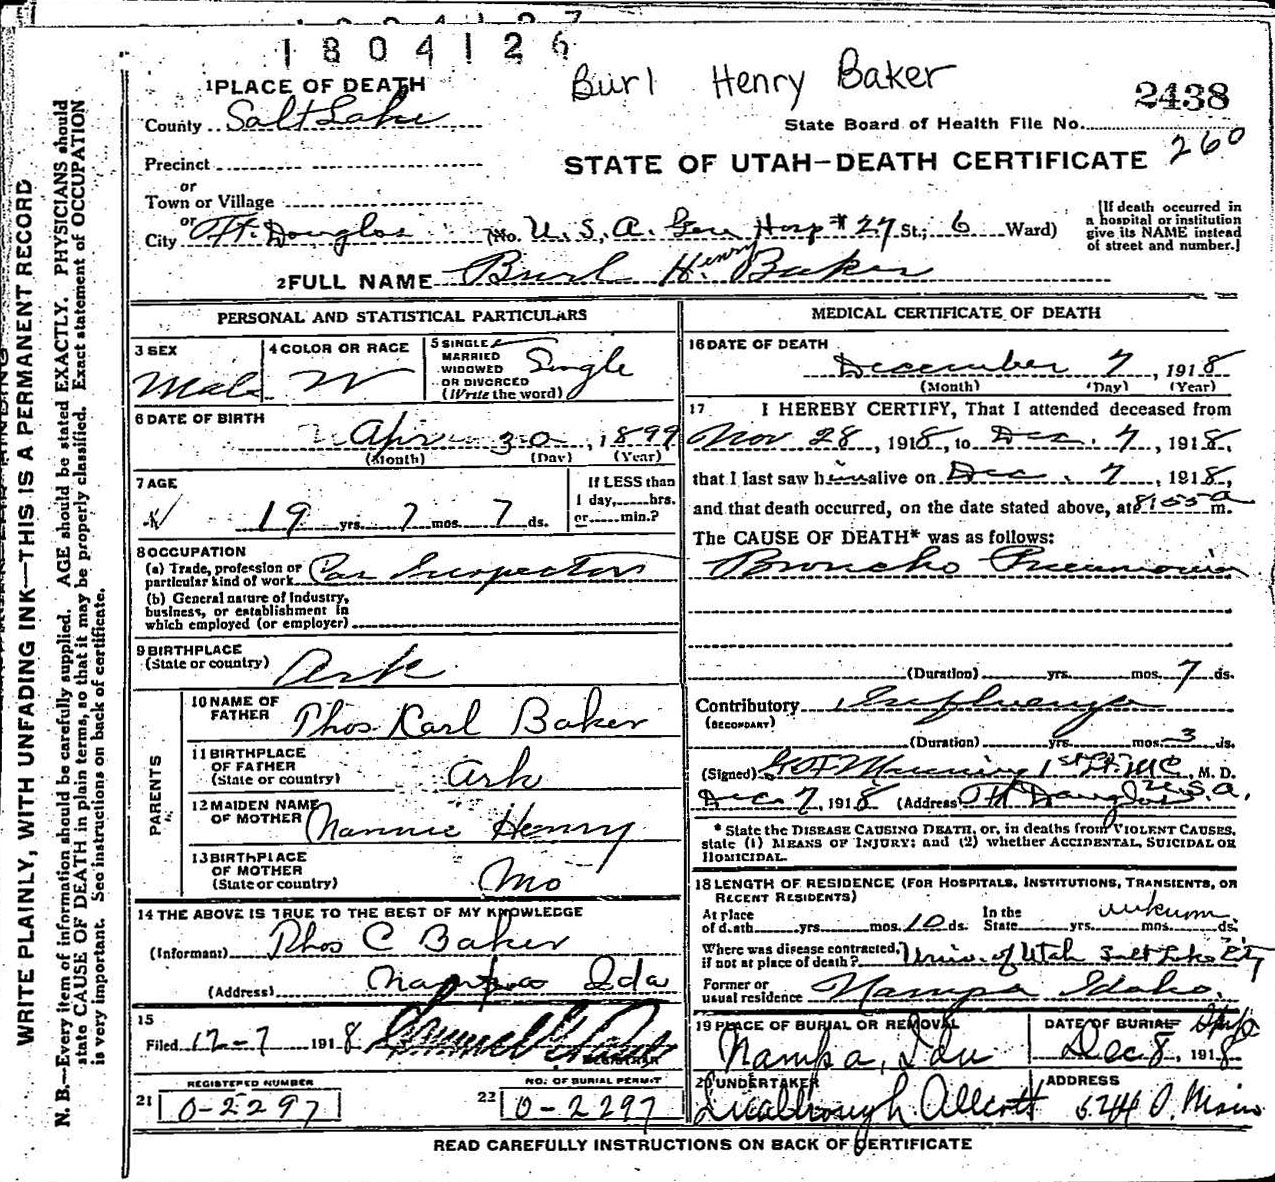 1804126
Burl Henry Baker
1 PLACE OF DEATH
2438
County Salt Lake
State Board of Health File No.
260
Precinct
STATE OF UTAH—DEATH CERTIFICATE
or
Town or Village
or
City Ft. Douglas (No. U. S. A. Gen Hosp #27 St.; 6 Ward)
[If death occurred in
a hospital or institution
give its NAME instead
of street and number.]
2 FULL NAME Burl Henry Baker
PERSONAL AND STATISTICAL PARTICULARS
3 SEX
Male
4 COLOR OR RACE
W
5 SINGLE
MARRIED
WIDOWED
OR DIVORCED
(Write the word)
Single
6 DATE OF BIRTH
Apr 30, 1899
(Month) (Day) (Year)
7 AGE
19 yrs. 7 mos. 7 ds.
If LESS than
1 day, hrs.
or min.?
8 OCCUPATION
(a) Trade, profession or
particular kind of work Car Inspector
(b) General nature of Industry,
business, or establishment in
which employed (or employer)
9 BIRTHPLACE
(State or country) Ark
PARENTS
10 NAME OF
FATHER Thos Karl Baker
11 BIRTHPLACE
OF FATHER
(State or country) Ark
12 MAIDEN NAME
OF MOTHER Nannie Henry
13 BIRTHPLACE
OF MOTHER
(State or country) Mo
14 THE ABOVE IS TRUE TO THE BEST OF MY KNOWLEDGE
(Informant) Thos C Baker
(Address) Nampa Ida
15
Filed 12-7 1918
REGISTRAR
REGISTERED NUMBER
21 0-2297
NO. OF BURIAL PERMIT
22 0-2297
MEDICAL CERTIFICATE OF DEATH
16 DATE OF DEATH
December 7, 1918
(Month) (Day) (Year)
17 I HEREBY CERTIFY, That I attended deceased from
Nov 28, 1918, to Dec. 7, 1918,
that I last saw him alive on Dec. 7, 1918,
and that death occurred, on the date stated above, at 8:55 a m.
The CAUSE OF DEATH* was as follows:
Broncho Pneumonia
(Duration) yrs. mos. 7 ds.
Contributory Influenza
(SECONDARY)
(Duration) yrs. mos. 3 ds.
(Signed) 1st Lt. MC, M. D.
U.S.A.
Dec 7, 1918 (Address) Ft Douglas
* State the DISEASE CAUSING DEATH, or, in deaths from VIOLENT CAUSES,
state (1) MEANS OF INJURY; and (2) whether ACCIDENTAL, SUICIDAL OR
HOMICIDAL.
18 LENGTH OF RESIDENCE (FOR HOSPITALS, INSTITUTIONS, TRANSIENTS, OR
RECENT RESIDENTS)
At place
of death yrs. mos. 10 ds.
In the
State yrs. mos. ds.
unknown.
Where was disease contracted,
if not at place of death? Univ. of Utah Salt Lake City
Former or
usual residence Nampa Idaho.
19 PLACE OF BURIAL OR REMOVAL
Nampa, Ida
DATE OF BURIAL
Dec 8, 1918
20 UNDERTAKER
ADDRESS
READ CAREFULLY INSTRUCTIONS ON BACK OF CERTIFICATE
WRITE PLAINLY, WITH UNFADING INK—THIS IS A PERMANENT RECORD
N. B.—Every item of information should be carefully supplied. AGE should be stated EXACTLY. PHYSICIANS should
state CAUSE OF DEATH in plain terms, so that it may be properly classified. Exact statement of OCCUPATION
is very important. See instructions on back of certificate.